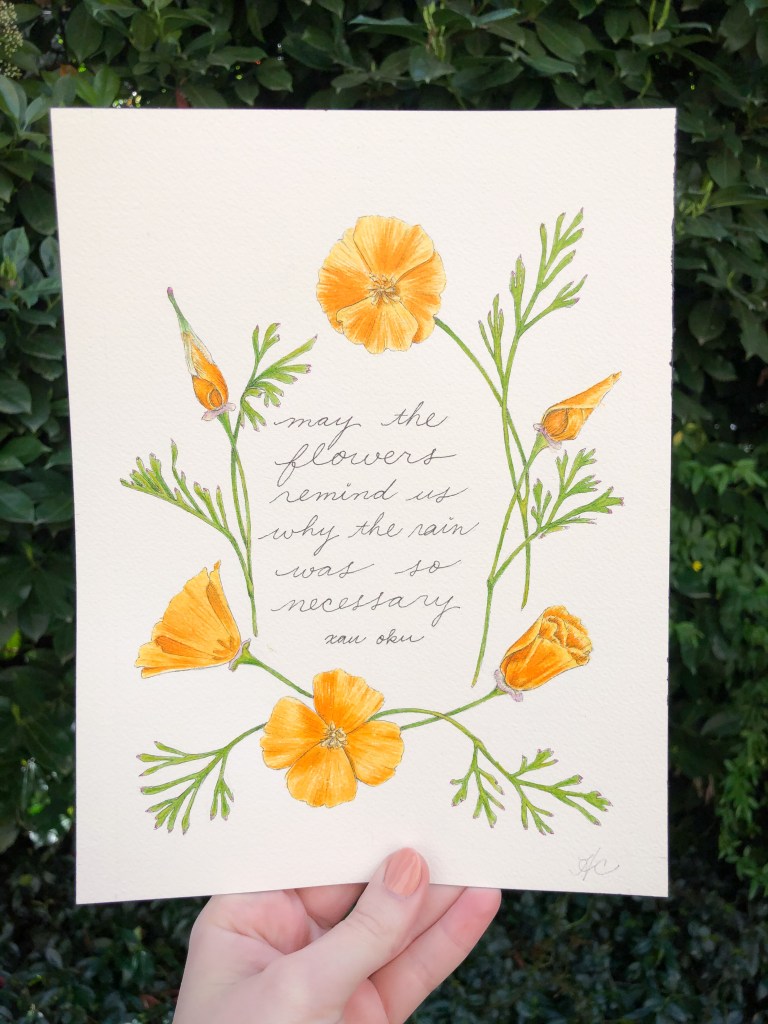 may the
flowers
remind us
why the rain
was so
necessary
xau oku